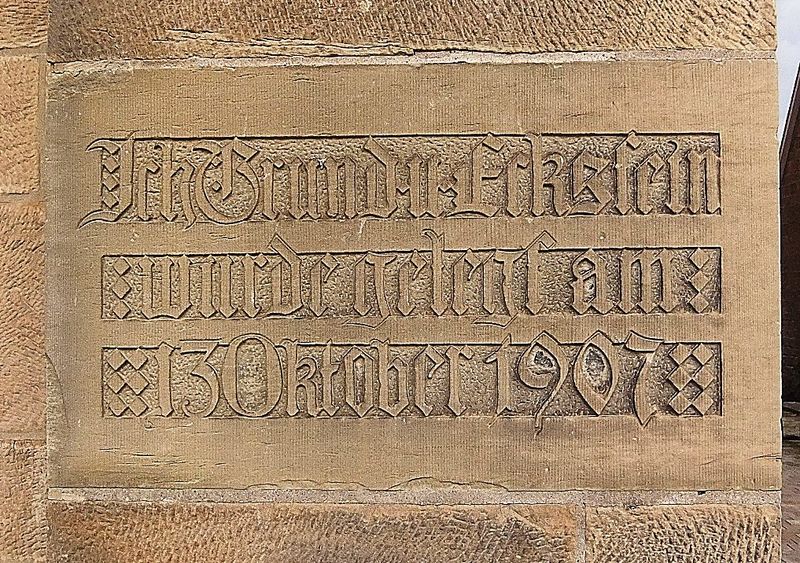 Ich Grund-u-Eckstein
wurde gelegt am
13 Oktober 1907